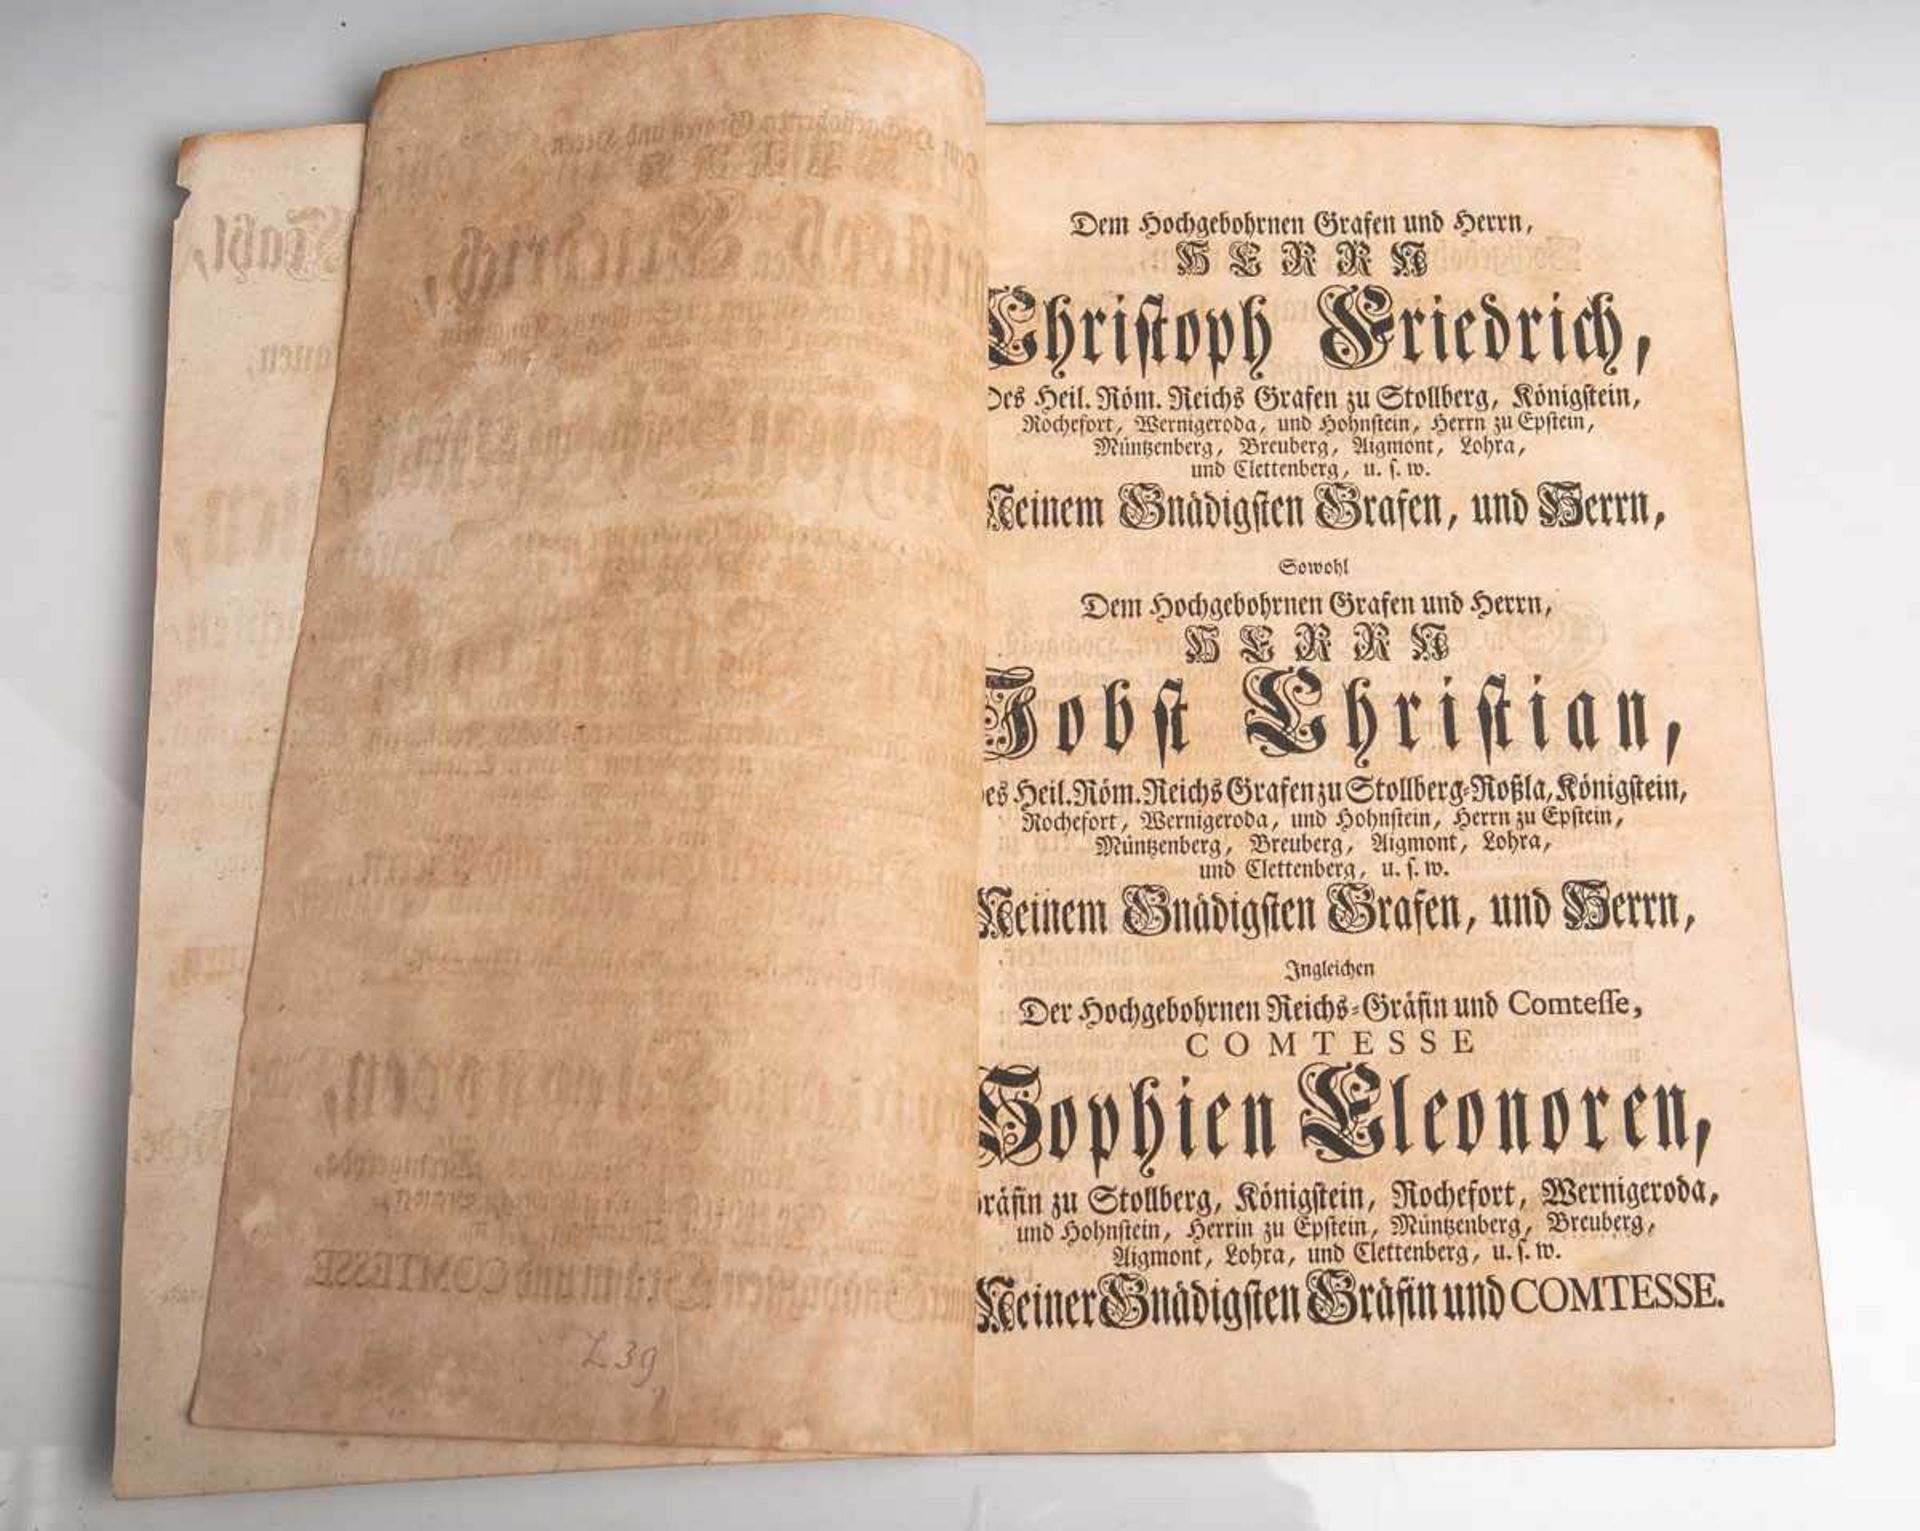 Stabl,
Dem Hochgebohrnen Grafen und Herrn,
HERRN
Christoph Friedrich,
Des Heil. Röm. Reichs Grafen zu Stollberg, Königstein,
Rochefort, Wernigeroda, und Hohnstein, Herrn zu Epstein,
Müntzenberg, Breuberg, Aigmont, Lohra,
und Clettenberg, u. s. w.
Meinem Gnädigsten Grafen, und Herrn,
Sowohl
Dem Hochgebohrnen Grafen und Herrn,
HERRN
Jobst Christian,
Des Heil. Röm. Reichs Grafen zu Stollberg-Roßla, Königstein,
Rochefort, Wernigeroda, und Hohnstein, Herrn zu Epstein,
Müntzenberg, Breuberg, Aigmont, Lohra,
und Clettenberg, u. s. w.
Meinem Gnädigsten Grafen, und Herrn,
Ingleichen
Der Hochgebohrnen Reichs-Gräfin und Comtesse,
COMTESSE
Sophien Eleonoren,
Gräfin zu Stollberg, Königstein, Rochefort, Wernigeroda,
und Hohnstein, Herrin zu Epstein, Müntzenberg, Breuberg,
Aigmont, Lohra, und Clettenberg, u. s. w.
Meiner Gnädigsten Gräfin und COMTESSE.
L 39